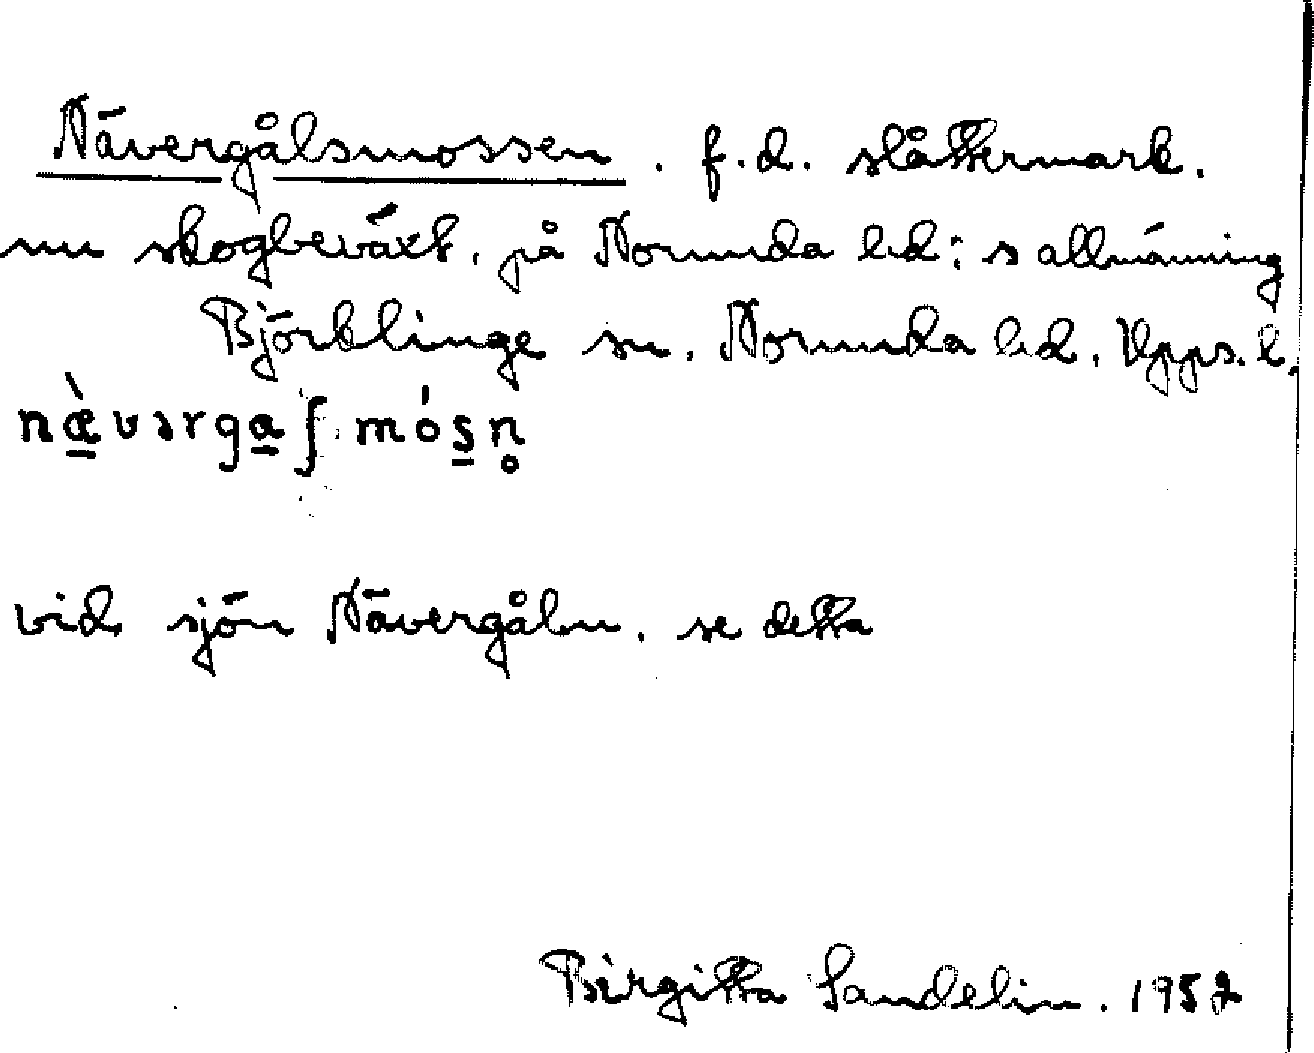 Nävergålsmossen. f.d. slåttermark.
nu skogbeväxt, på Norunda hd:s allmänning
Björklinge sn. Norunda hd. Upps. l.
næ̀vərgaʃmósn̥
vid sjön Nävergåln. se detta
Birgitta Sandelin. 1952